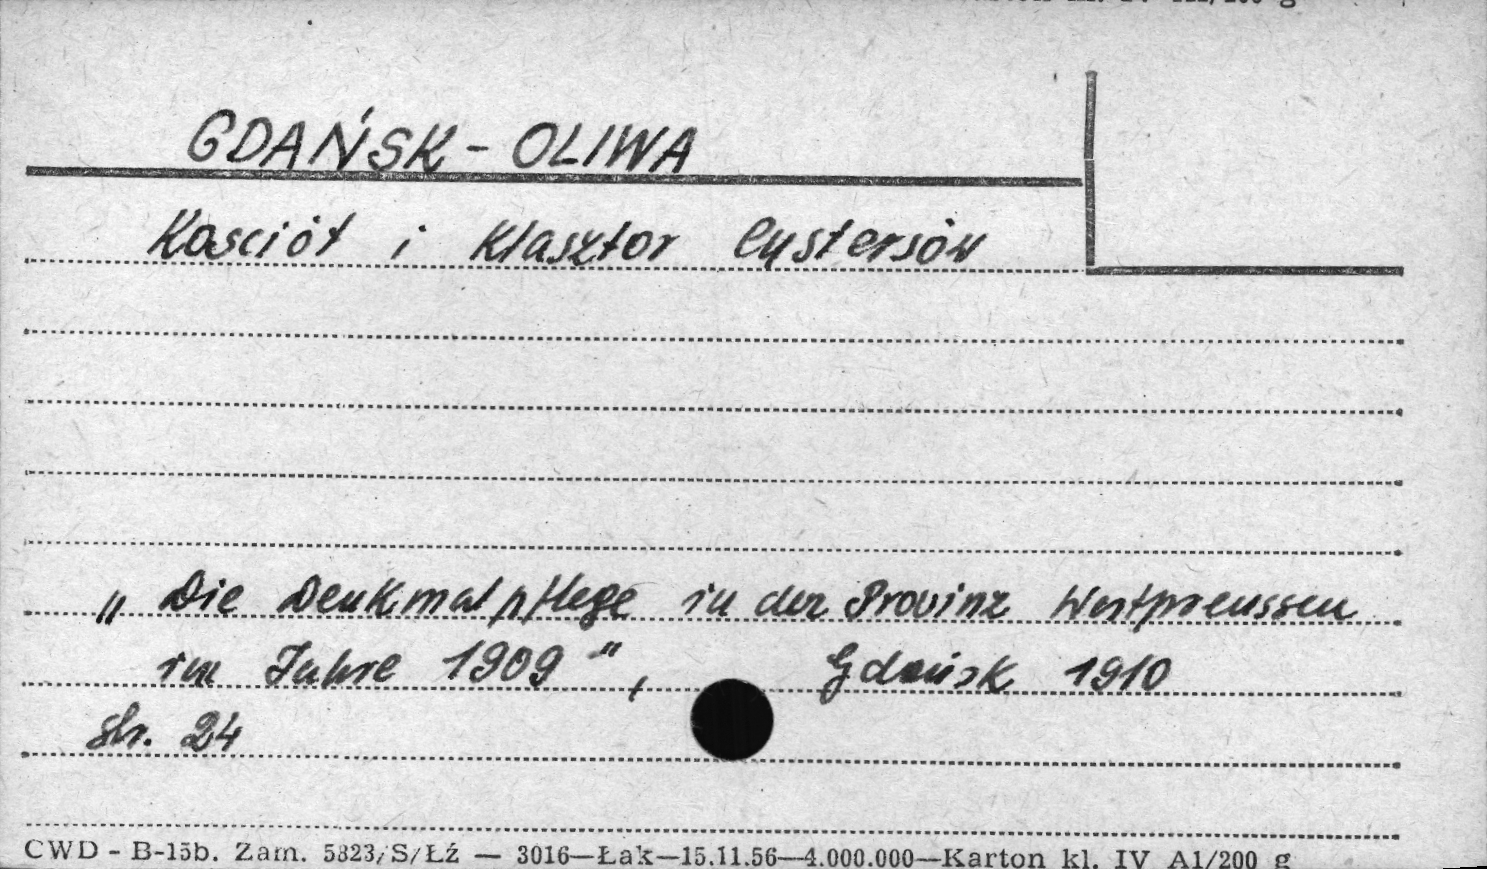 GDAŃSK - OLIWA
Kościół i Klasztor Cystersów
„ Die Denkmalpflege in der Provinz Westpreussen
im Jahre 1909 ", Gdańsk 1910
str. 24
CWD - B-15b. Zam. 5823/S/Łź — 3016—Łak—15.11.56—4.000.000—Karton kl. IV A1/200 g